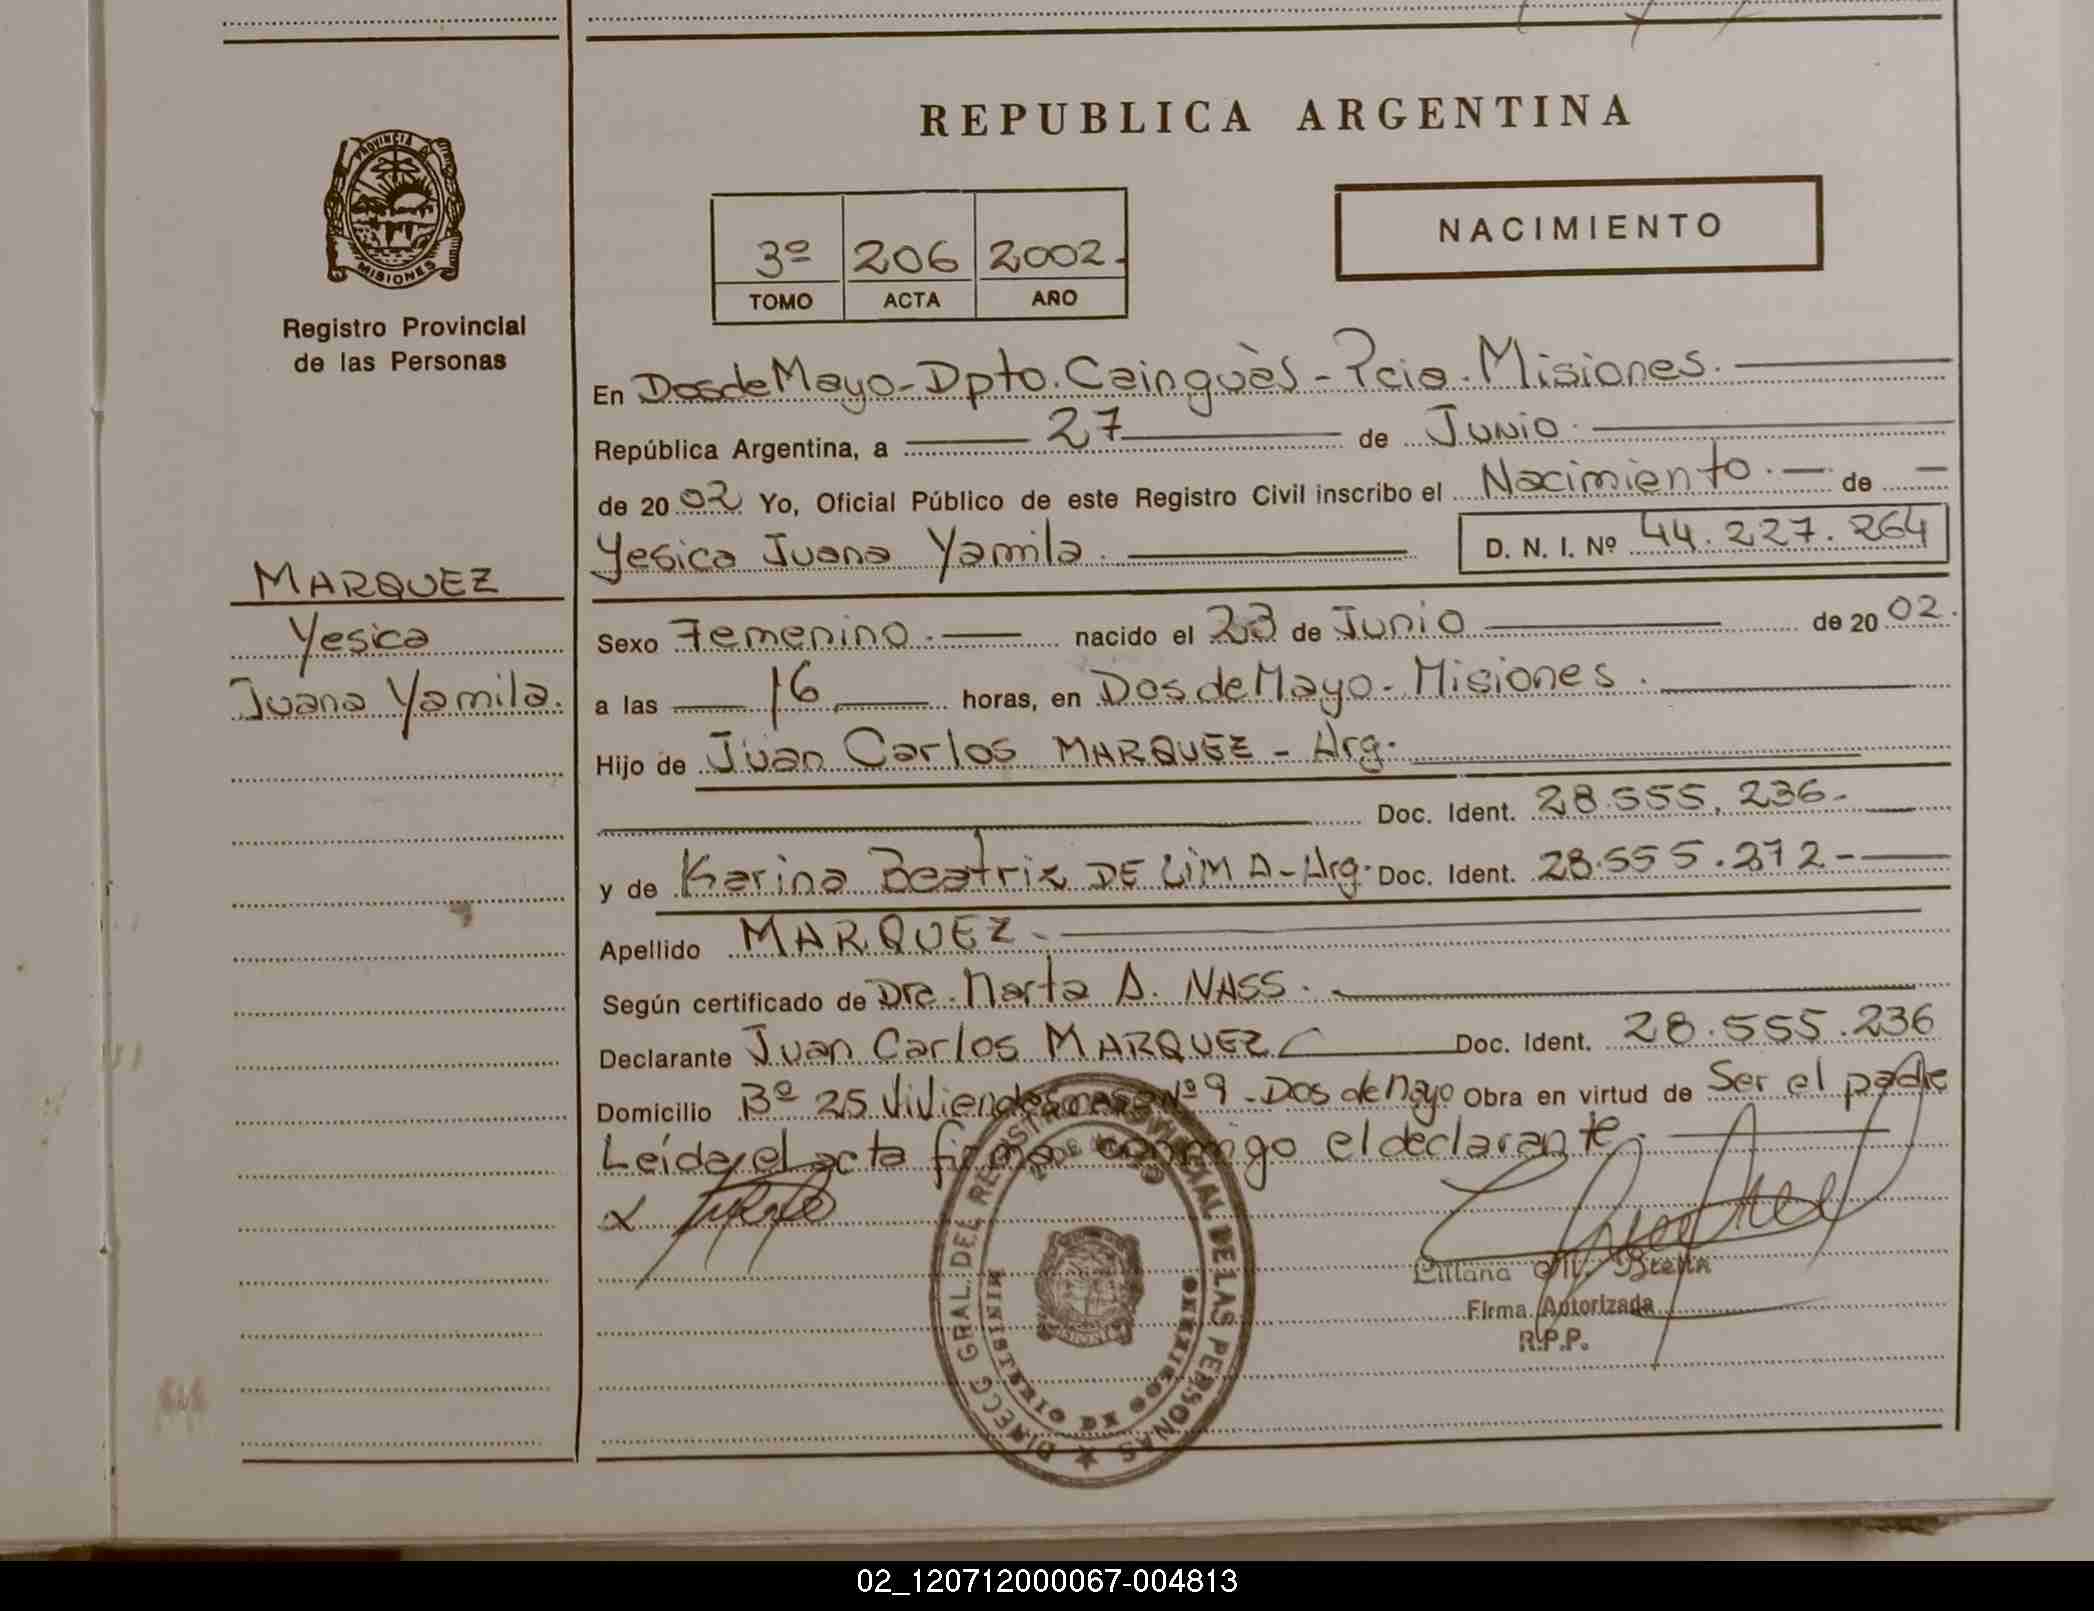 REPUBLICA ARGENTINA
PROVINCIA DE
MISIONES
Registro Provincial
de las Personas
3º 206 2002.
TOMO ACTA AÑO
NACIMIENTO
En Dos de Mayo - Dpto. Cainguès - Pcia. Misiones.
República Argentina, a 27 de Junio.
de 2002 Yo, Oficial Público de este Registro Civil inscribo el Nacimiento. de
Yesica Juana Yamila. D. N. I. Nº 44.227.264
MARQUEZ
Yesica
Juana Yamila.
Sexo Femenino. nacido el 23 de Junio de 2002.
a las 16 horas, en Dos de Mayo - Misiones.
Hijo de Juan Carlos MARQUEZ - Arg.
Doc. Ident. 28.555.236-
y de Karina Beatriz DE LIMA - Arg. Doc. Ident. 28.555.272-
Apellido MARQUEZ.
Según certificado de Dra. Marta A. NASS.
Declarante Juan Carlos MARQUEZ Doc. Ident. 28.555.236
Domicilio Bº 25 Viviendas casa Nº 9 - Dos de Mayo Obra en virtud de Ser el padre
Leída el acta firma conmigo el declarante.
DIRECC GRAL. DEL REGISTRO PROVINCIAL DE LAS PERSONAS
MINISTERIO DE GOBIERNO
Liliana
Firma Autorizada
R.P.P.
02_120712000067-004813